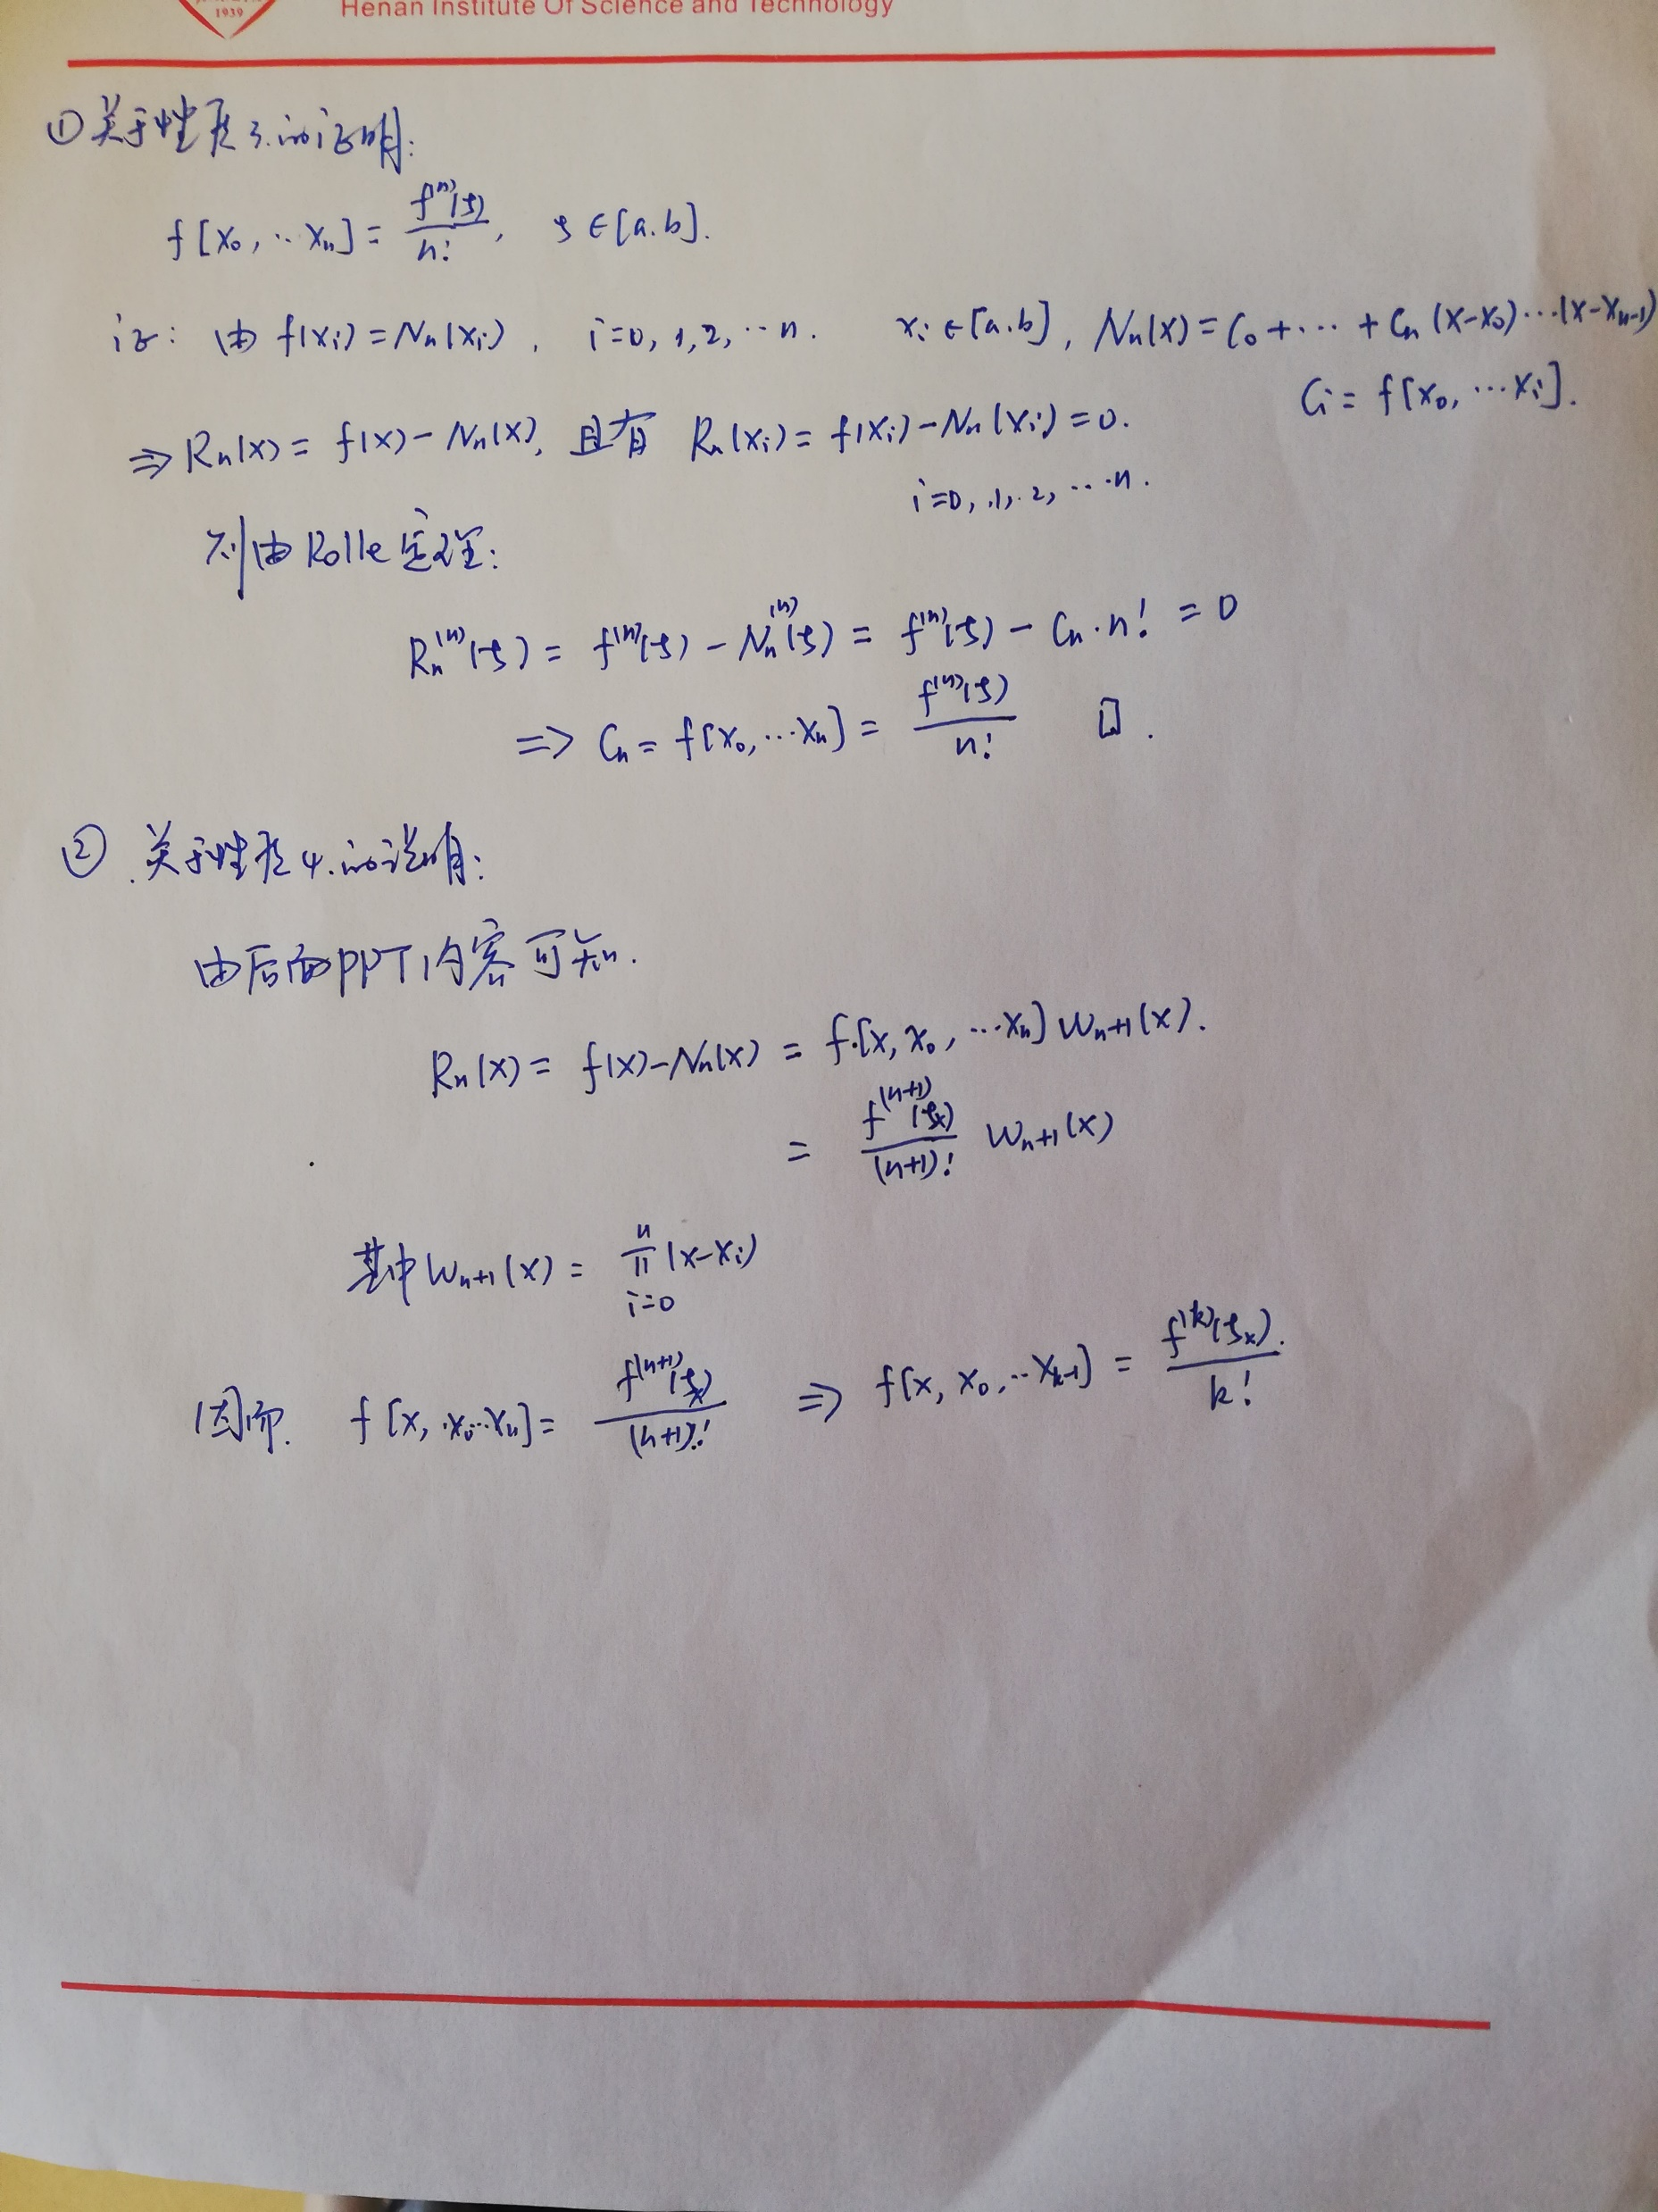 1939
Henan Institute Of Science and Technology
①关于性质3.的证明:
f[x₀, ⋯ xₙ] = f⁽ⁿ⁾(ξ) / n! , ξ∈[a.b].
证: 由 f(xᵢ)=Nₙ(xᵢ), i=0, 1, 2, ⋯ n. xᵢ∈[a.b], Nₙ(x)=C₀+⋯+Cₙ(x-x₀)⋯(x-xₙ₋₁)
Cᵢ = f[x₀, ⋯xᵢ].
⇒ Rₙ(x) = f(x) - Nₙ(x), 且有 Rₙ(xᵢ) = f(xᵢ)-Nₙ(xᵢ)=0.
i=0, 1, 2, ⋯n.
则由Rolle定理:
Rₙ⁽ⁿ⁾(ξ) = f⁽ⁿ⁾(ξ) - Nₙ⁽ⁿ⁾(ξ) = f⁽ⁿ⁾(ξ) - Cₙ·n! = 0
⇒ Cₙ = f[x₀, ⋯xₙ] = f⁽ⁿ⁾(ξ) / n! □.
② 关于性质4.的说明:
由后面PPT内容可知.
Rₙ(x) = f(x)-Nₙ(x) = f[x, x₀, ⋯xₙ] Wₙ₊₁(x).
= f⁽ⁿ⁺¹⁾(ξₓ) / (n+1)! Wₙ₊₁(x)
其中 Wₙ₊₁(x) = ∏ⁿᵢ₌₀ (x-xᵢ)
因而. f[x, x₀⋯xₙ] = f⁽ⁿ⁺¹⁾(ξₓ) / (n+1)! ⇒ f[x, x₀, ⋯xₖ₋₁] = f⁽ᵏ⁾(ξₓ) / k! .